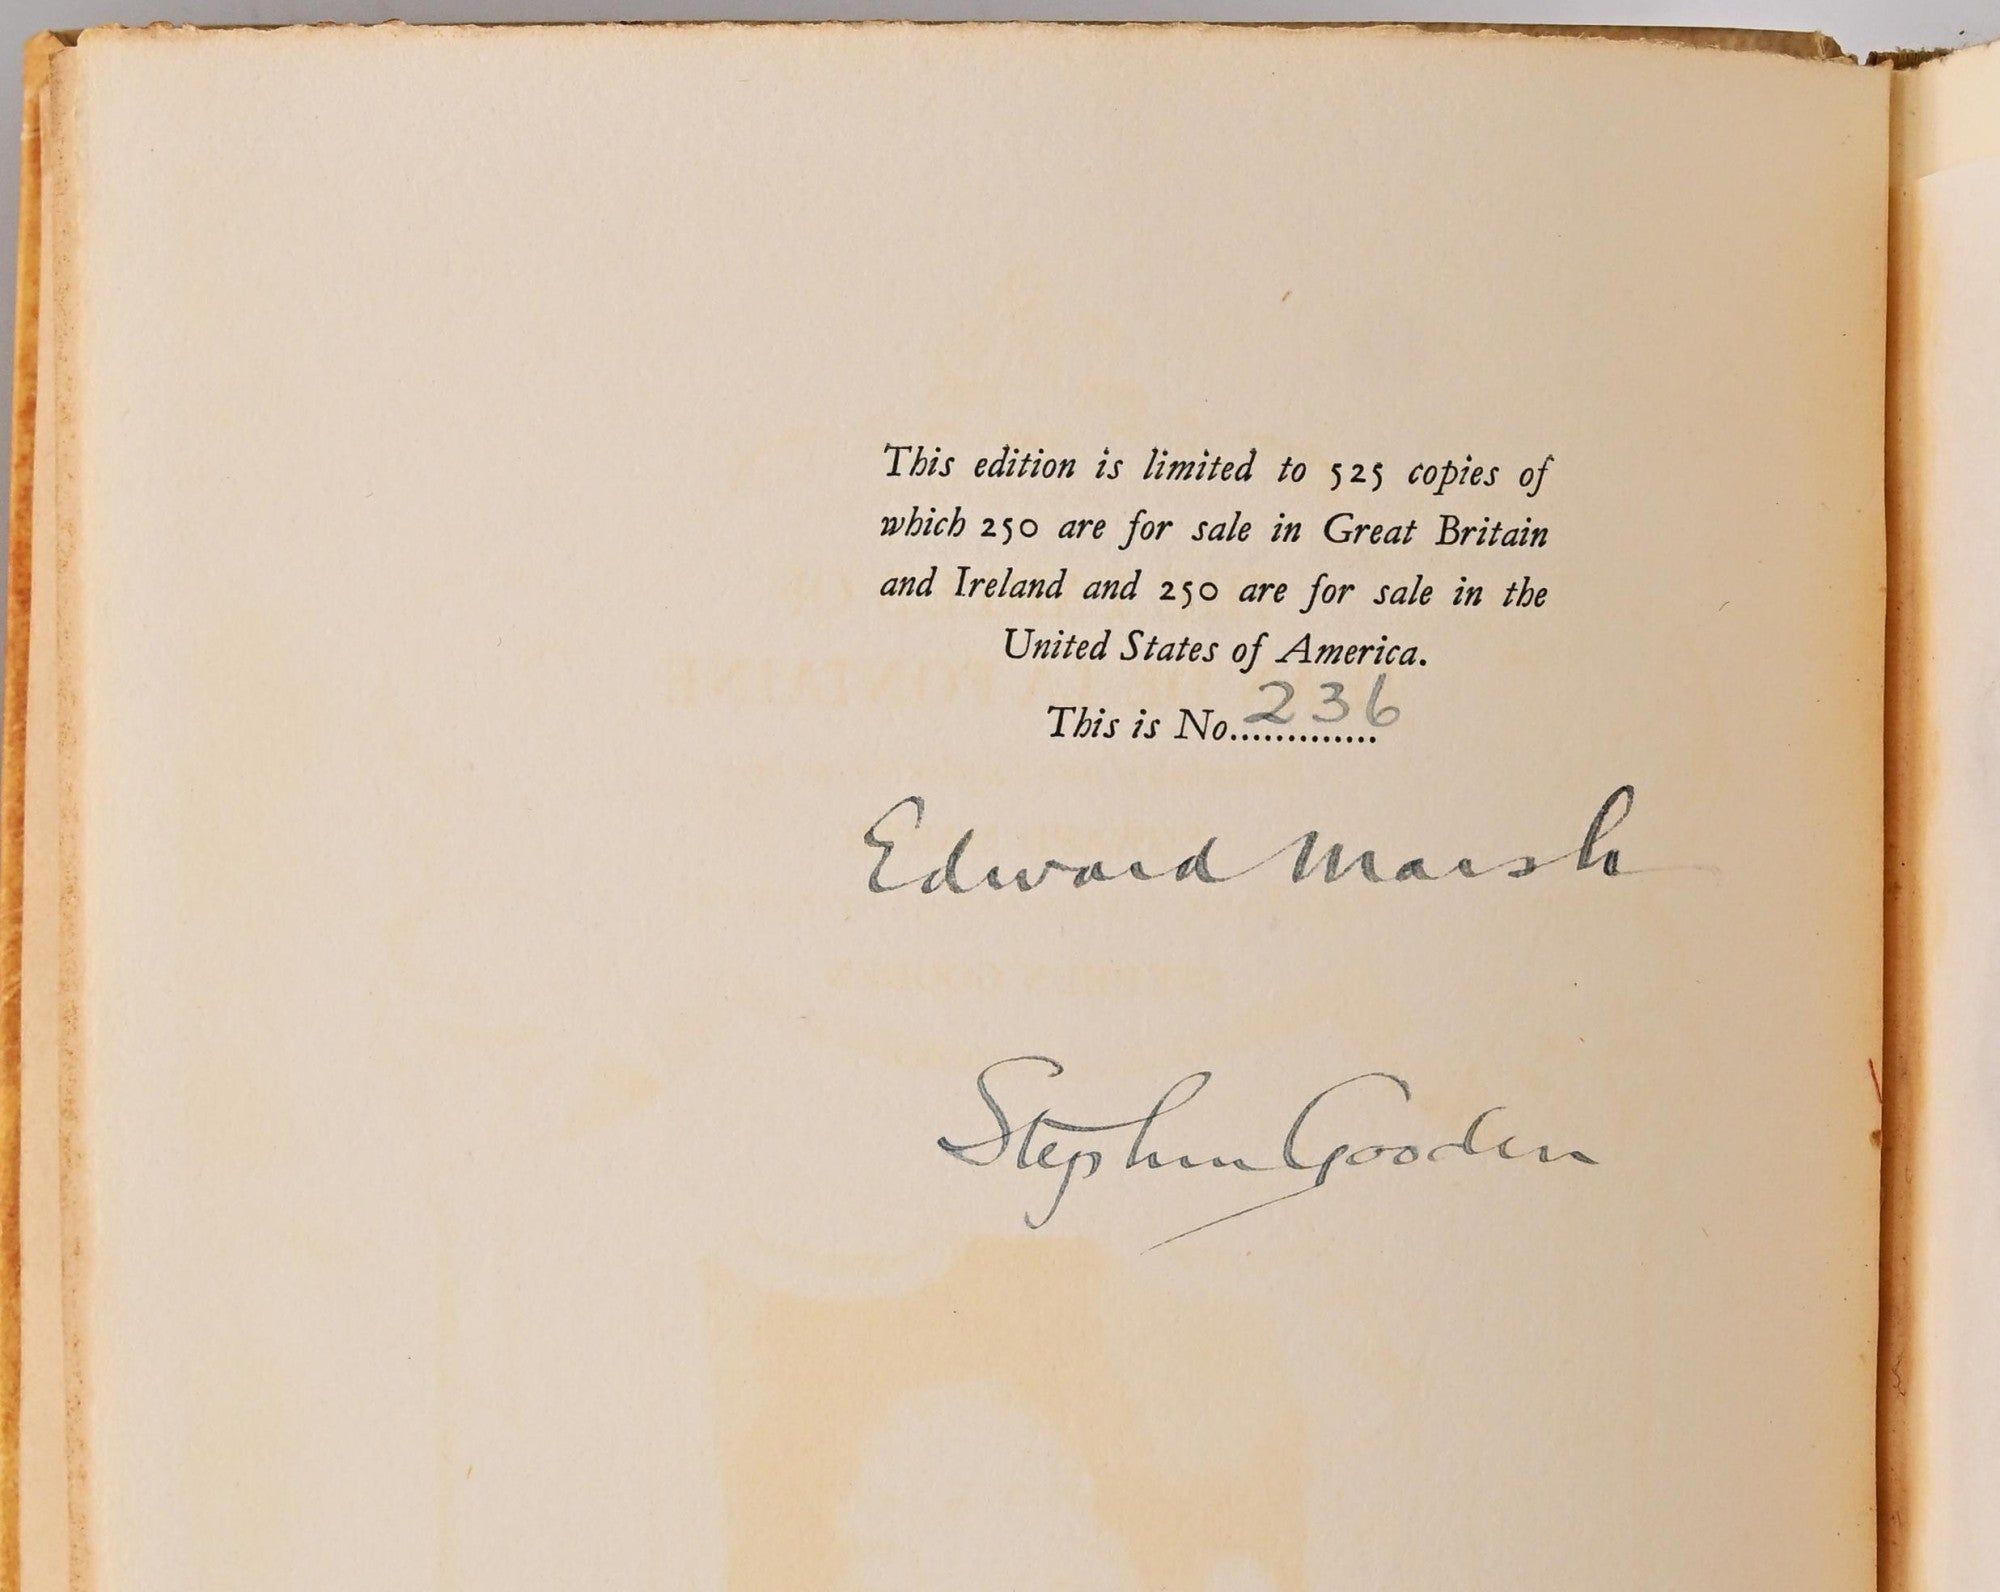 This edition is limited to 525 copies of
which 250 are for sale in Great Britain
and Ireland and 250 are for sale in the
United States of America.
This is No.............236
Edward Marsh
Stephen Gooden